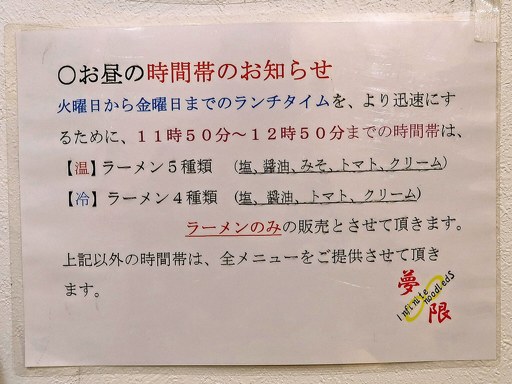 〇お昼の時間帯のお知らせ
火曜日から金曜日までのランチタイムを、より迅速にす
るために、11時50分～12時50分までの時間帯は、
【温】ラーメン5種類 （塩、醤油、みそ、トマト、クリーム）
【冷】ラーメン4種類 （塩、醤油、トマト、クリーム）
ラーメンのみの販売とさせて頂きます。
上記以外の時間帯は、全メニューをご提供させて頂き
ます。
夢限
Infinite
noodleds